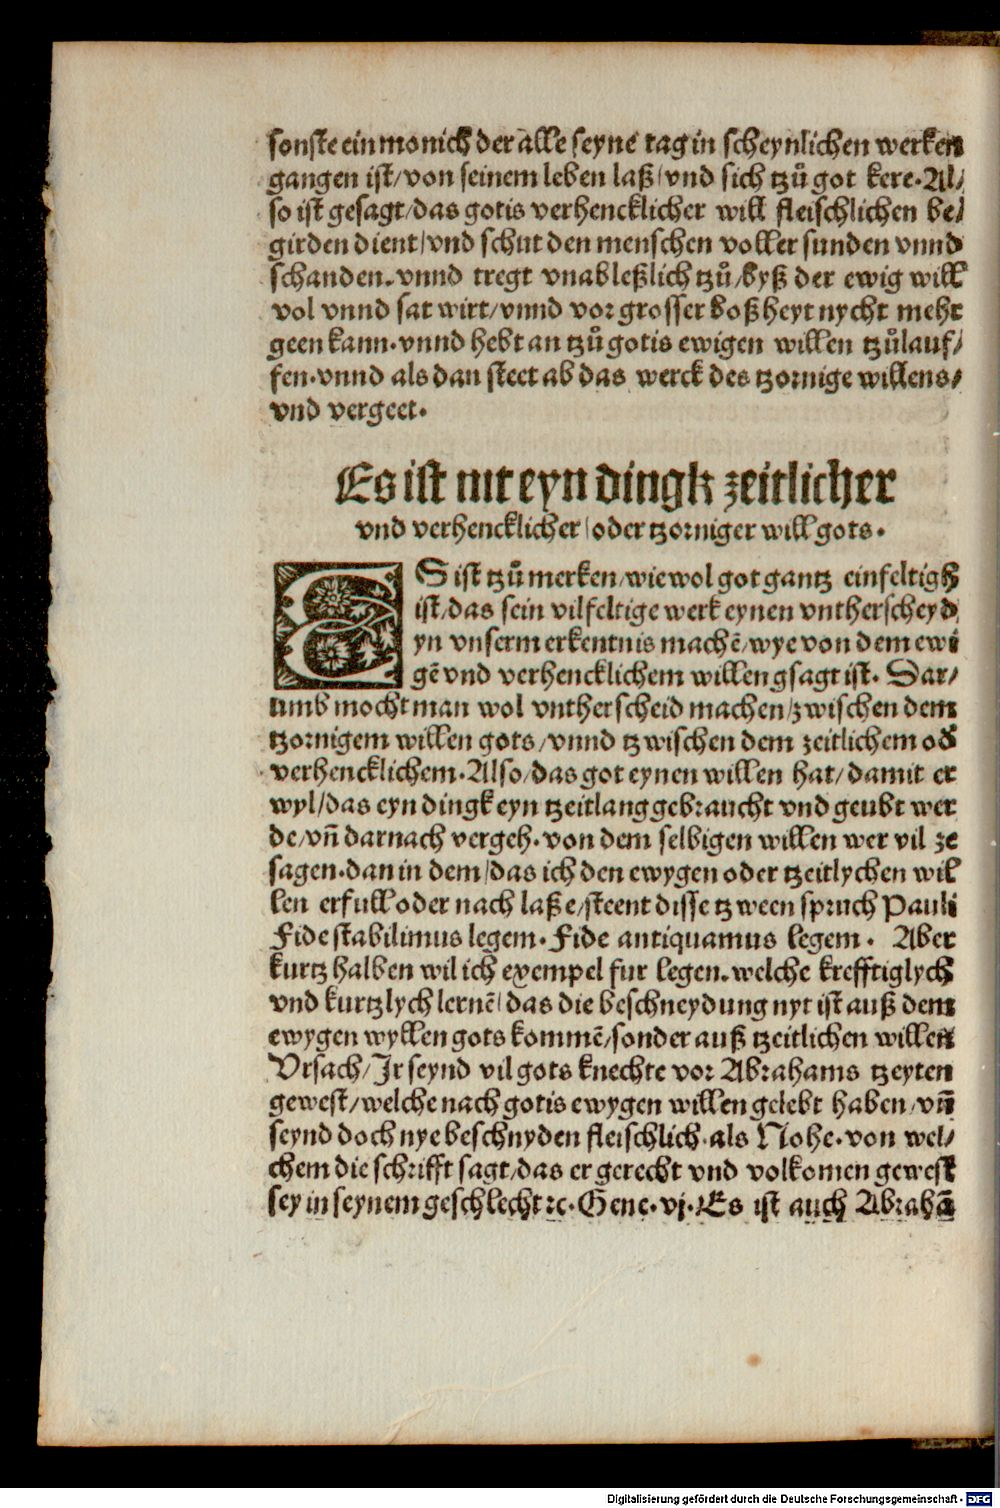 sonste ein monich der alle seyne tag in scheynlichen werken
gangen ist/von seinem leben laß/vnd sich tzů got kere. Al/
so ist gesagt/das gotis verhencklicher will fleischlichen be/
girden dient/vnd schut den menschen voller sunden vnnd
schanden. vnnd tregt vnableßlich tzů/byß der ewig will
vol vnnd sat wirt/vnnd vor grosser boßheyt nycht mehr
geen kann. vnnd hebt an tzů gotis ewigen willen tzůlauf/
fen. vnnd als dan steet ab das werck des tzornige willens/
vnd vergeet.
Es ist nit eyn dingk zeitlicher
vnd verhencklicher/oder tzorniger will gots.
ES ist tzů merken/wiewol got gantz einfeltigh
ist/das sein vilfeltige werk eynen vntherscheyd
yn vnserm erkentnis machē/wye von dem ewi
gē vnd verhencklichem willen gsagt ist. Dar/
umb mocht man wol vntherscheid machen/zwischen dem
tzornigem willen gots/vnnd tzwischen dem zeitlichem od
verhencklichem. Also/das got eynen willen hat/damit er
wyl/das eyn dingk eyn tzeitlang gebraucht vnd geubt wer
de/vn̄ darnach vergeh. von dem selbigen willen wer vil ze
sagen. dan in dem/das ich den ewygen oder tzeitlychen wil
len erfull oder nach laße/steent disse tzween spruch Pauli
Fide stabilimus legem. Fide antiquamus legem. Aber
kurtz halben wil ich exempel fur legen. welche krefftiglych
vnd kurtzlych lernē/das die beschneydung nyt ist auß dem
ewygen wyllen gots kommē/sonder auß tzeitlichen willen
Vrsach/Ir seynd vil gots knechte vor Abrahams tzeyten
gewest/welche nach gotis ewygen willen gelebt haben/vn̄
seynd doch nye beschnyden fleischlich. als Nohe. von wel/
chem die schrifft sagt/das er gerecht vnd volkomen gewest
sey in seynem geschlecht ꝛc. Gene. vj. Es ist auch Abrahā
Digitalisierung gefördert durch die Deutsche Forschungsgemeinschaft - DFG